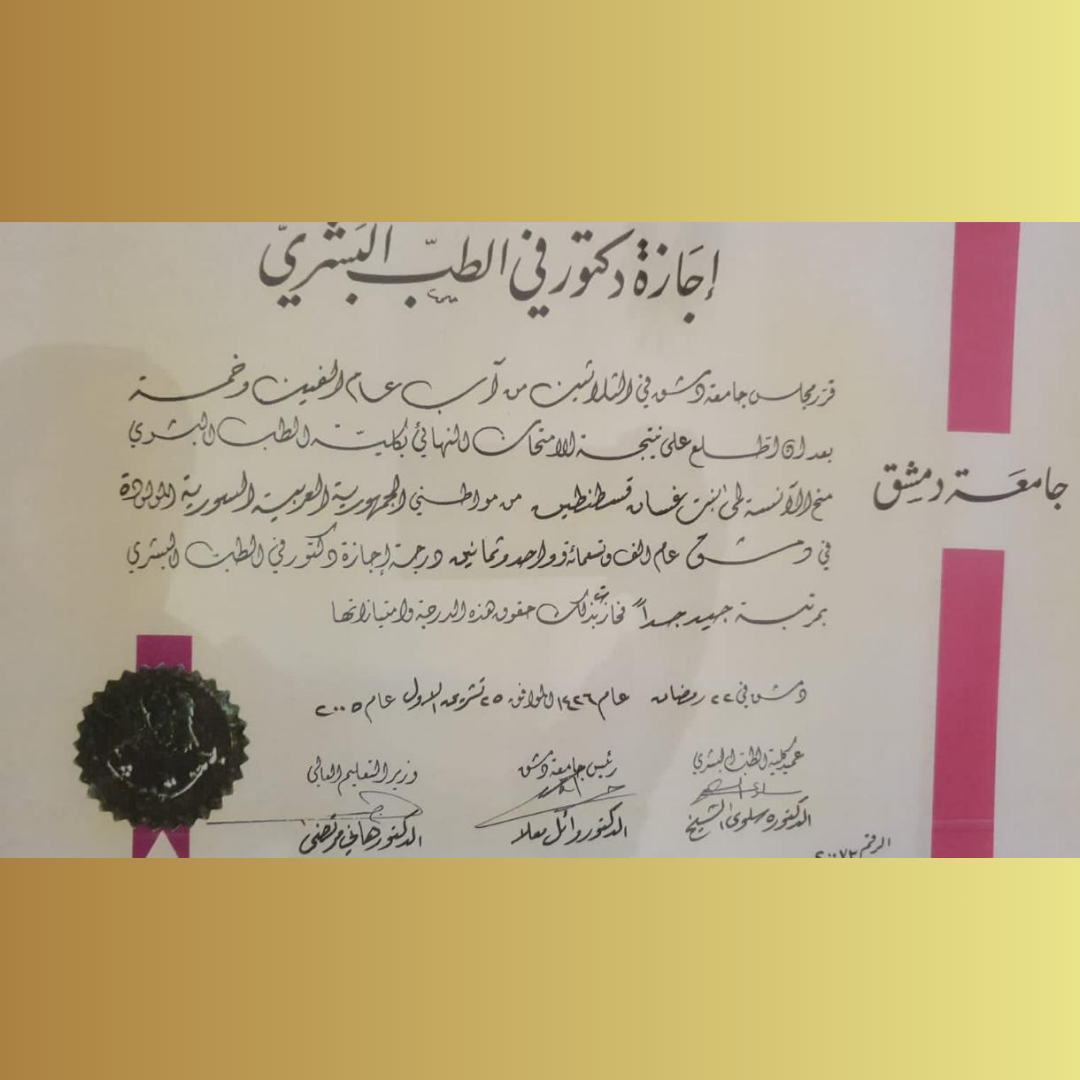 إجازة دكتور في الطبّ البشريّ
قرر مجلس جامعة دمشق في الثلاثين من آب عام الفين وخمسة
بعد ان اطلع على نتيجة الامتحان النهائي بكلية الطب البشري
جامعة دمشق
منح الآنسة لمى بنت غسان قسطنطين من مواطني الجمهورية العربية السورية المولودة
في دمشق عام الف وتسعمائة وواحد وثمانين درجة إجازة دكتور في الطب البشري
بمرتبة جيد جداً فحازت بذلك حقوق هذه الدرجة وامتيازاتها
دمشق في ٢٢ رمضان عام ١٤٢٦ الموافق ٢٥ تشرين الاول عام ٢٠٠٥
عميد كلية الطب البشري رئيس جامعة دمشق وزير التعليم العالي
الدكتورة سلوى الشيخ الدكتور وائل معلا الدكتور هاني مرتضى
الرقم